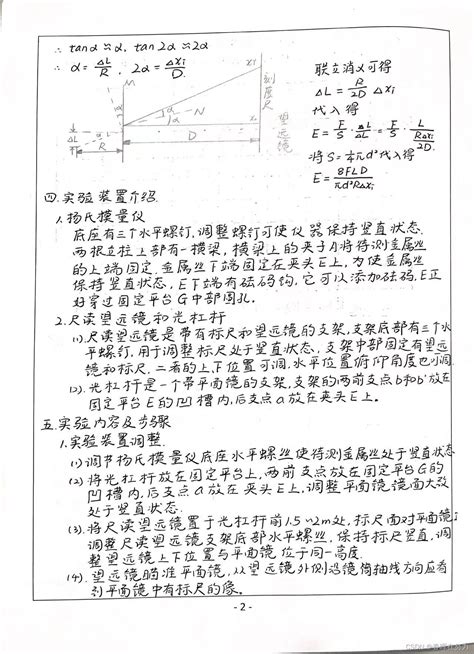 ∵ tanα≈α, tan2α≈2α
∴ α = ΔL/R , 2α = Δxi/D
M
xi
N
α
α
x₀
ΔL
R
D
刻度尺
望远镜
联立消α可得
ΔL = R/2D Δxi
代入得
E = F/S · L/ΔL = F/S · L/(RΔxi/2D)
将S=¼πd²代入得
E = 8FLD/πd²RΔxi
四.实验装置介绍.
1.杨氏模量仪
底座有三个水平螺钉,调整螺钉可使仪器保持竖直状态.
两根立柱上部有一横梁,横梁上的夹子J将待测金属丝
的上端固定,金属丝下端固定在夹头E上,为使金属丝
保持竖直状态,E下端有砝码钩,它可以添加砝码,E正
好穿过固定平台G中部圆孔.
2.尺读望远镜和光杠杆
(1).尺读望远镜是带有标尺和望远镜的支架,支架底部有三个水
平螺钉,用于调整标尺处于竖直状态,支架中部固定有望远
镜和标尺,二者的上、下位置可调,水平位置俯仰角度也可调.
(2).光杠杆是一个带平面镜的支架,支架的两前支点b和b'放在
固定平台E的凹槽内,后支点a放在夹头E上.
五.实验内容及步骤
1.实验装置调整.
(1)调节杨氏模量仪底座水平螺丝使待测金属丝处于竖直状态
(2)将光杠杆放在固定平台上,两前支点放在固定平台G的
凹槽内,后支点a放在夹头E上,调整平面镜镜面大致
处于竖直状态.
(3).将尺读望远镜置于光杠杆前1.5~2m处,标尺面对平面镜,
调整尺读望远镜支架底部水平螺丝,保持标尺竖直,调
整望远镜上下位置与平面镜位于同一高度.
(4).望远镜瞄准平面镜,从望远镜外侧沿镜筒轴线方向应看
到平面镜中有标尺的像。
- 2 -